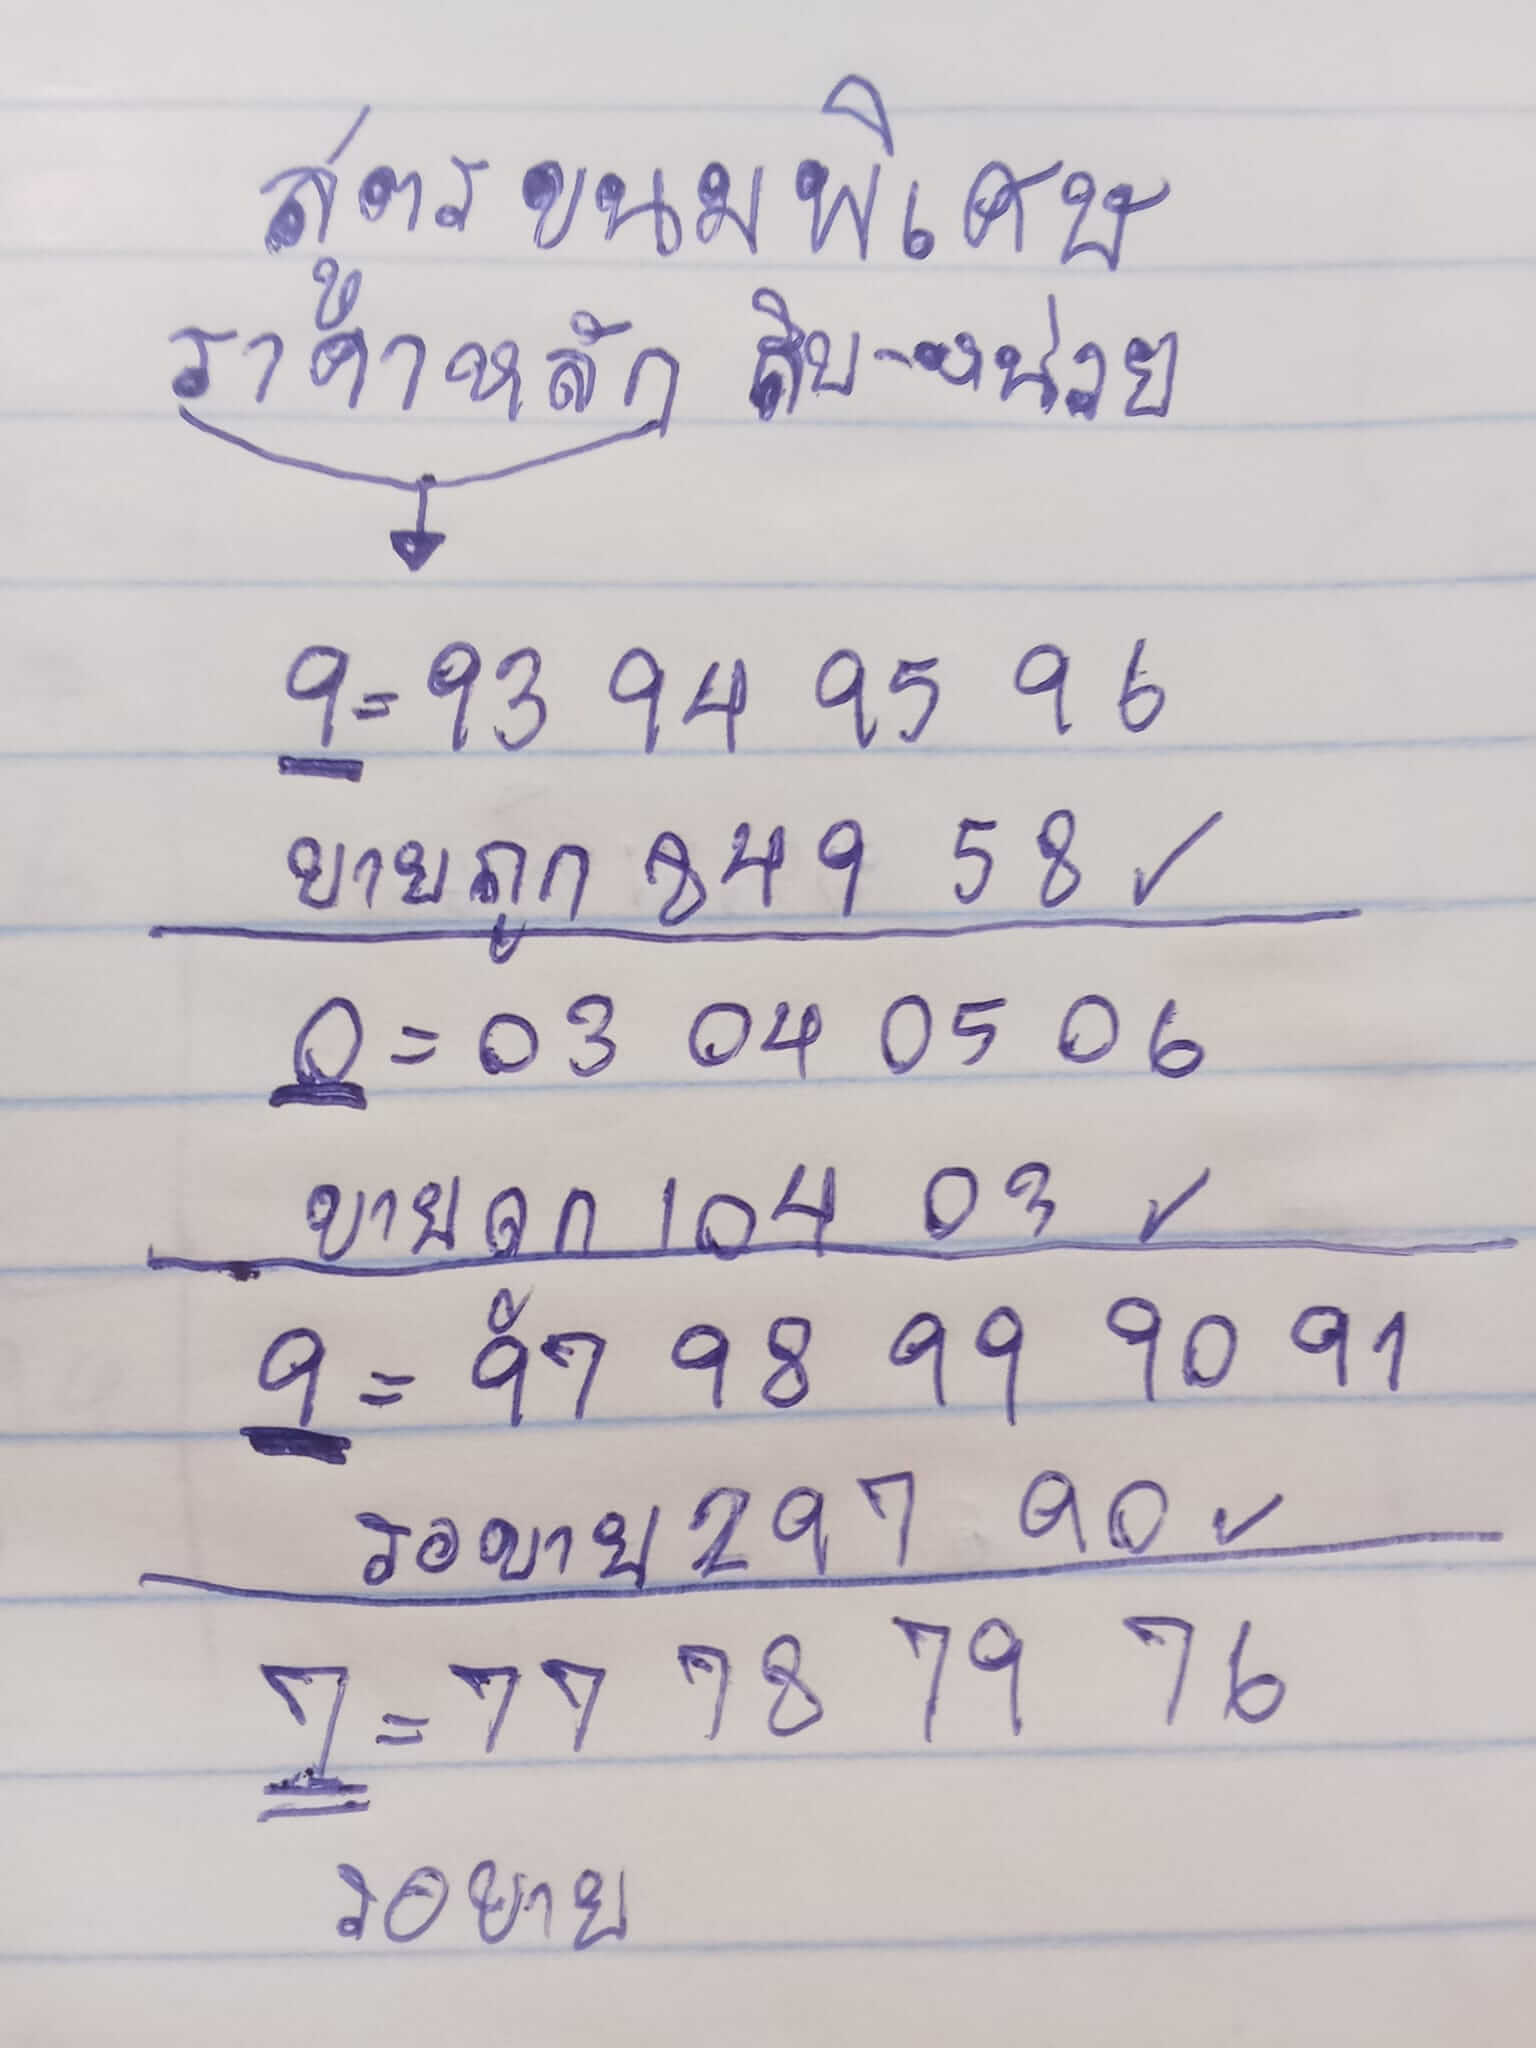 สูตรขนมพิเศษ
ราคาหลัก สิบ-หน่วย
9=93 94 95 96
ขายถูก 849 58 ✓
0=03 04 05 06
ขาย 104 03 ✓
9=97 98 99 90 91
รอขาย 297 90 ✓
7=77 78 79 76
รอขาย